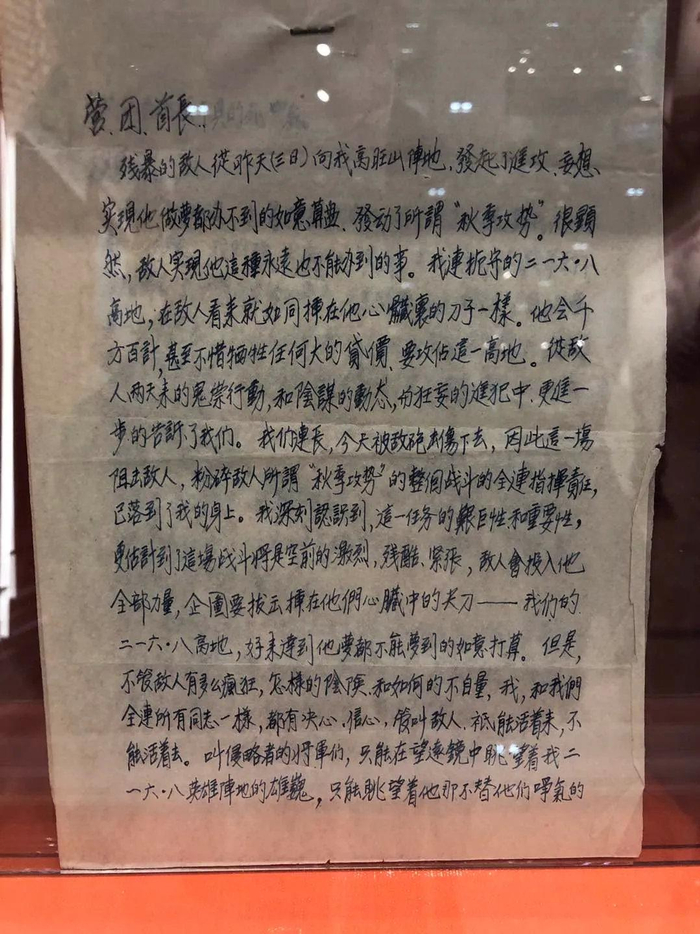 营、团、首長：
残暴的敌人從昨天(三日)向我高旺山陣地、發起了進攻、妄想、
实現他做夢都办不到的如意算盘、發动了所謂“秋季攻势”。很顯
然，敌人实現他這種永遠也不能办到的事。我連扼守的二一六·八
高地，在敌人看来就如同揷在他心臟裏的刀子一樣。他会千
方百計，甚至不惜牺牲任何大的貸價、要攻佔這一高地。從敌
人两天来的鬼祟行動，和陰謀的動态，的狂妄的進犯中、更進一
步的告訴了我们。我们連長，今天被敌砲击傷下去，因此這一塲
阻击敌人，粉碎敌人所謂“秋季攻势”的整個战斗的全連指揮責任，
已落到了我的身上。我深刻認識到，這一任務的艱巨性和重要性，
更估計到了這塲战斗将是空前的激烈，残酷、紧張，敌人會投入他
全部力量，企圖要拔去揷在他們心臟中的尖刀——我们的
二一六·八高地，好来達到他夢都不能夢到的如意打算。但是，
不管敌人有多么瘋狂，怎樣的陰险、和如何的不自量，我，和我們
全連所有同志一樣，都有决心、信心，管叫敌人、祇能活着来，不
能活着去。叫侵略者的将軍们，只能在望遠鏡中眺望着我二
一六·八英雄陣地的雄巍，只能眺望着他那不替他们爭氣的